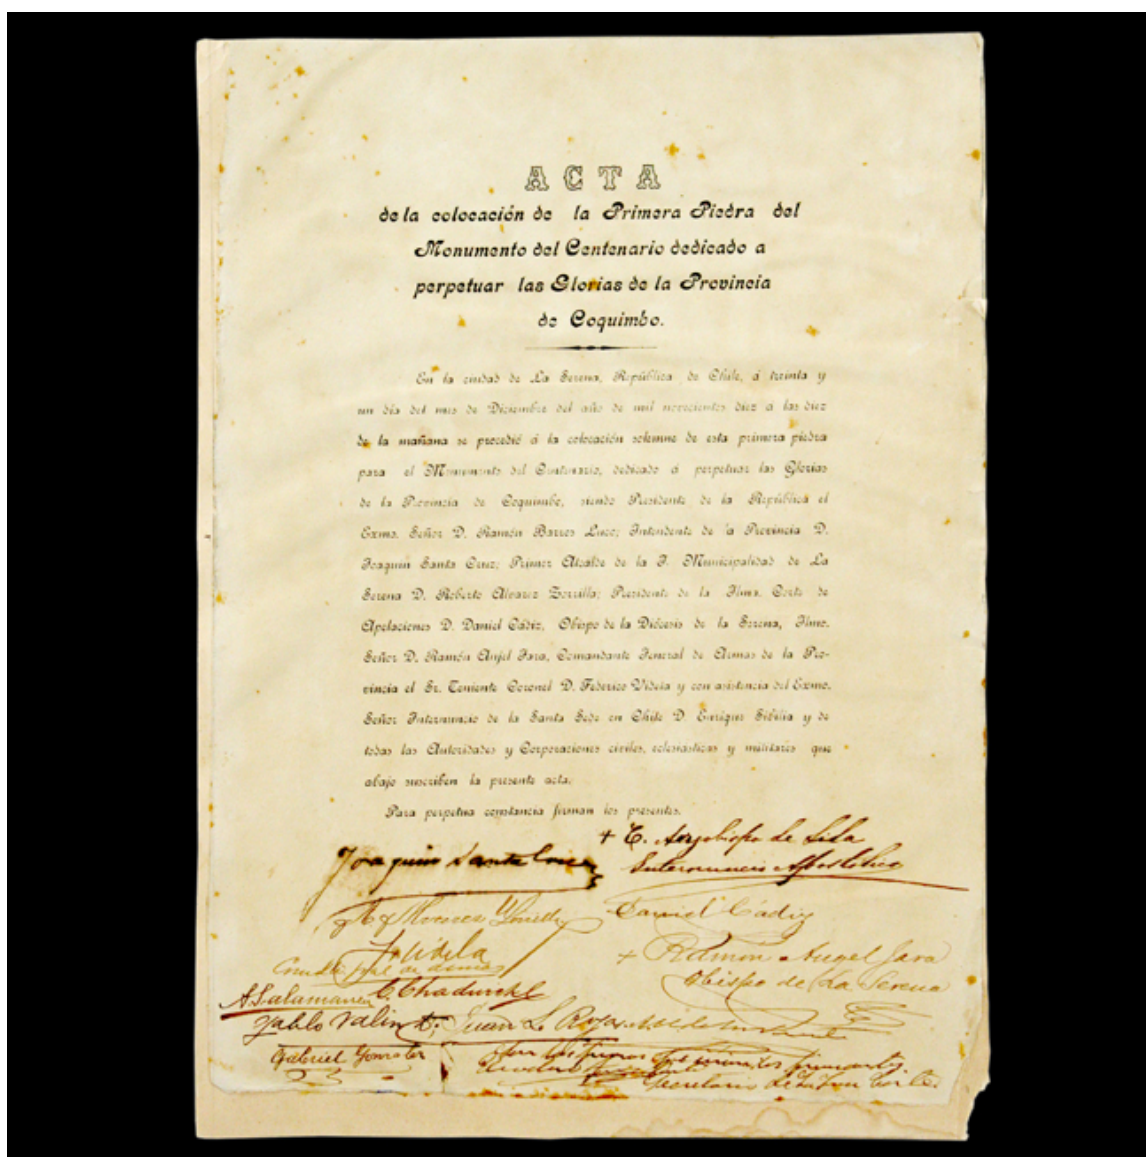 ACTA
de la colocación de la Primera Piedra del
Monumento del Centenario dedicado a
perpetuar las Glorias de la Provincia
de Coquimbo.
En la ciudad de La Serena, República de Chile, á treinta y
un día del mes de Diciembre del año de mil novecientos diez á las diez
de la mañana se procedió á la colocación solemne de esta primera piedra
para el Monumento del Centenario, dedicado á perpetuar las Glorias
de la Provincia de Coquimbo, siendo Presidente de la República el
Exmo. Señor D. Ramón Barros Luco; Intendente de la Provincia D.
Joaquin Santa Cruz; Primer Alcalde de la I. Municipalidad de La
Serena D. Roberto Alvarez Zorrilla; Presidente de la Iltma. Corte de
Apelaciones D. Daniel Cádiz, Obispo de la Diócesis de la Serena, Iltmo.
Señor D. Ramón Anjel Jara, Comandante Jeneral de Armas de la Pro-
vincia el Sr. Teniente Coronel D. Federico Videla y con asistencia del Exmo.
Señor Internuncio de la Santa Sede en Chile D. Enrique Sibilia y de
todas las Autoridades y Corporaciones civiles, eclesiásticas y militares que
abajo suscriben la presente acta.
Para perpetua constancia firman los presentes.
+ E. Arzobispo de Sida
Internuncio Apostólico
Joaquin Santa Cruz
Daniel Cádiz
F Videla
+ Ramón Angel Jara
Obispo de La Serena
A. Salamanca
Pablo
Juan L. Rojas
Gabriel Gonzalez
Secretario de la